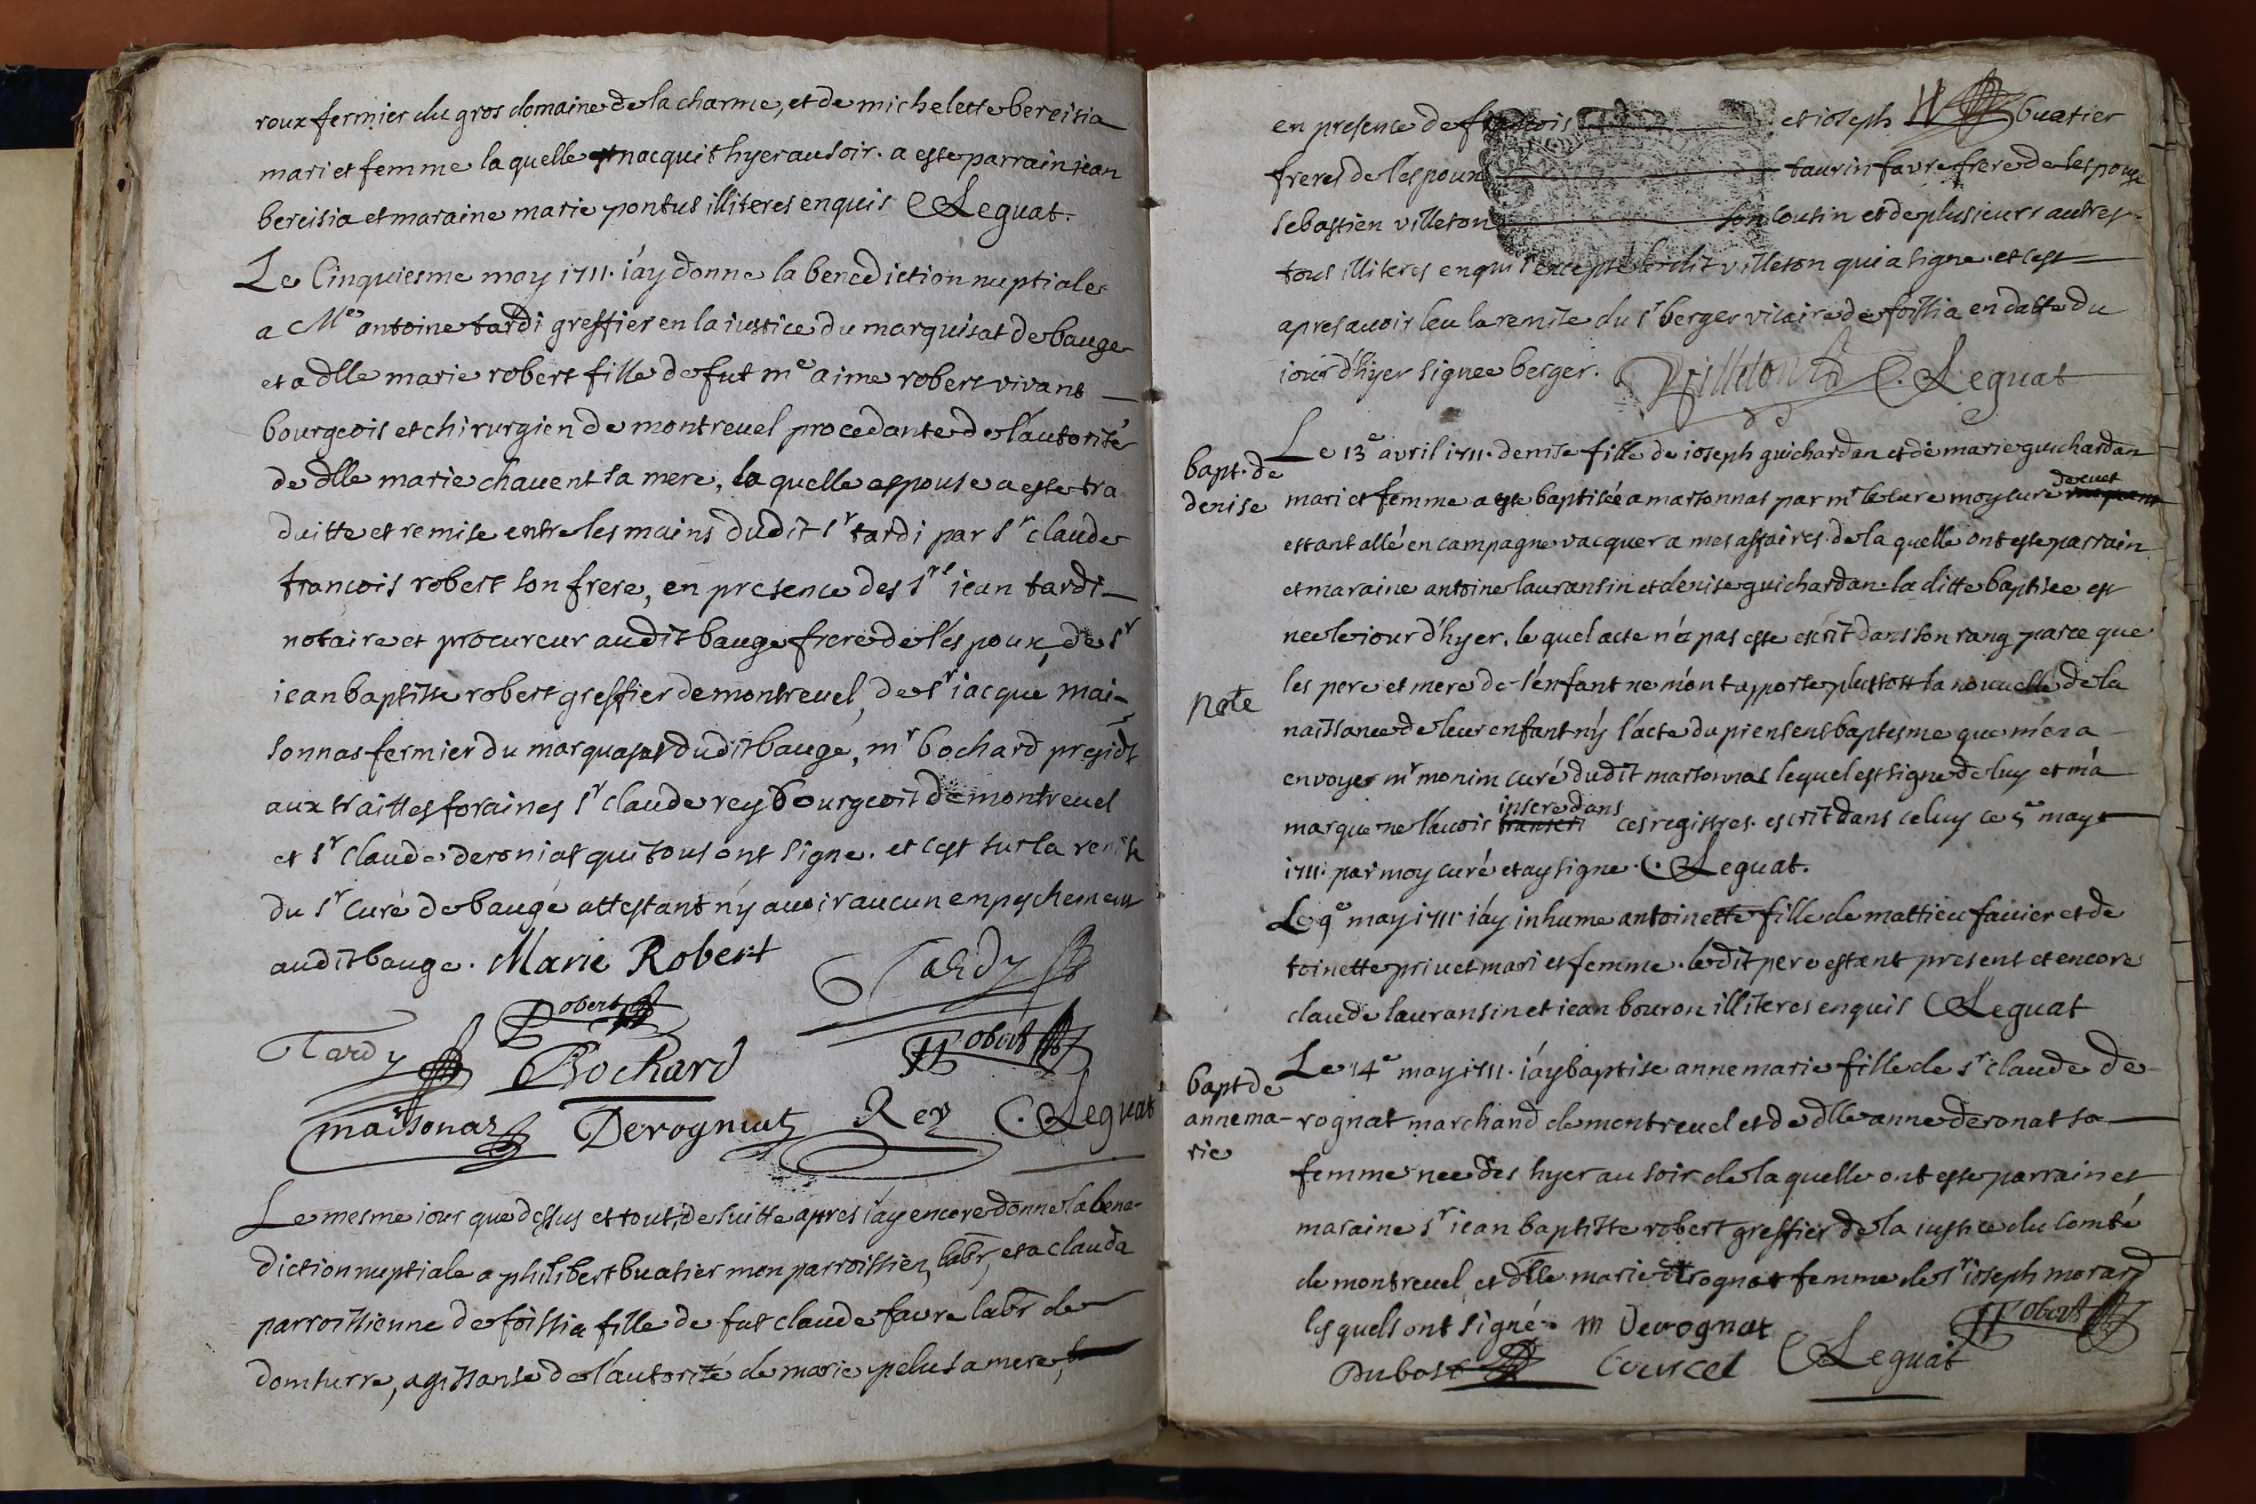 roux fermier du gros domaine de la charme, et de michelette bereisia
mari et femme la quelle nacquit hyer au soir. a este parrain jean
bereisia et maraine marie pontus illiteres enquis C Leguat.
Le Cinquiesme may 1711. j'ay donne la benediction nuptiale
a Me antoine tardi greffier en la justice du marquisat de bauge
et a dlle marie robert fille de fut me aime robert vivant
bourgeois et chirurgien de montrevel procedante de l'autorité
de dlle marie chavent sa mere, la quelle espouse a este tra
duitte et remise entre les mains dudit sr tardi par sr claude
francois robert son frere, en presence des srs jean tardi
notaire et procureur audit bauge frere de l'espoux, de sr
jean baptiste robert greffier de montrevel, de sr jacque mai-
sonnas fermier du marquasat dudit bauge, mr bochard presidt
aux traittes foraines sr claude rey bourgeois de montrevel
et sr claude deroniat qui tous ont signe. et c'est sur la remise
du sr curé de baugé attestant n'y avoir aucun enpeschement
audit bauge. Marie Robert
Tardy
Robert
Tardy
Bochard
Robert
maisonas Derogniat Rey C. Leguat
Le mesme jour que dessus et tout de suitte apres j'ay encore donne la bene-
diction nuptiale a philibert buatier mon parroissien, labr, et a clauda
parroissienne de foissia fille de fut claude favre labr de
domsurre, agissante de l'autorité de marie pelus sa mere,
en presence de francois et joseph buatier
freres de l'espoux taurin favre frere de l'espouse
sebastien villeton son cousin et de plusieurs autres
tous illiteres enquis excepté ledit villeton qui a signe. et c'est
apres avoir leu la remise du sr berger vicaire de foissia en datte du
jour d'hyer signee berger. Villeton C. Leguat
bapt. de
denise
Le 13e avril 1711. denise fille de joseph guichardan et de marie guichardan
mari et femme a este baptisée a marsonnas par mr le cure moy cure
estant allé en campagne vacquer a mes affaires. de la quelle ont este parrain
et maraine antoine lauransin et denise guichardan. la ditte baptisee est
nee le jour d'hyer. le quel acte n'a pas este escrit dans son rang parce que
les pere et mere de l'enfant ne m'ont apporte plustost la nouvelle de la
note
naissance de leur enfant n'y l'acte du present baptesme que m'en a
envoyer mr monim curé dudit marsonnas lequel est signe de luy et m'a
marque ne l'avoir insere dans ces registres. escrit dans celuy ce 5e may
1711. par moy curé et ay signe. C. Leguat.
Le 9e may 1711 j'ay inhume antoinette fille de mattieu favier et de
toinette privet mari et femme. ledit pere estant present et encore
claude lauransin et jean bouron illiteres enquis C Leguat
bapt de
anne ma-
rie
Le 14e may 1711. j'ay baptise anne marie fille de sr claude de-
rognat marchand de montrevel et de dlle anne deronat sa
femme nee des hyer au soir de la quelle ont este parrain et
maraine sr jean baptiste robert greffier de la justice du comté
de montrevel, et dlle marie drognat femme de sr joseph morard
lesquels ont signé. m Derognat Robert
Dubost Courcel C Leguat